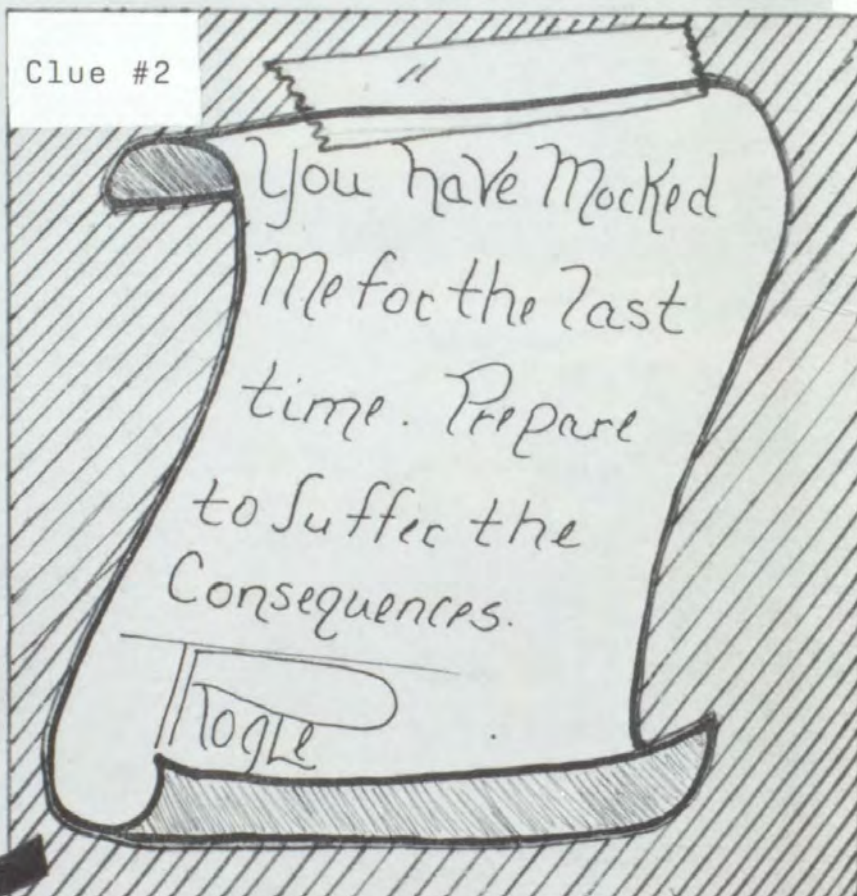 Clue #2
You have Mocked
Me for the last
time. Prepare
to Suffer the
Consequences.